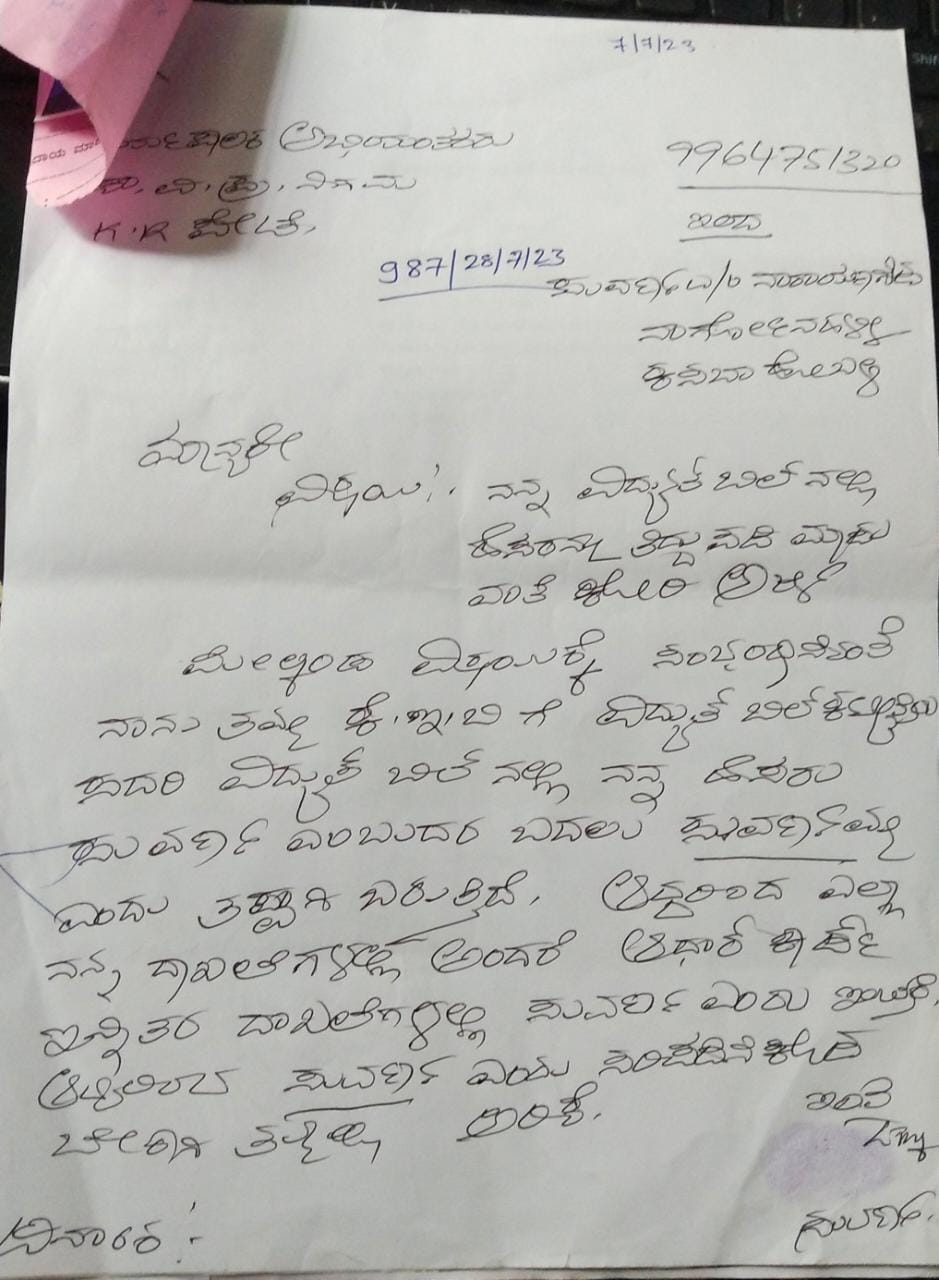 7/7/23
ಕಾರ್ಯಪಾಲಕ ಅಭಿಯಂತರರು
9964751320
ವಿ. ಪ್ರ. ನಿಗಮ
K.R ಪೇಟೆ,
ಇಂದ
987/28/7/23
ಸುವರ್ಣ W/o ನಾರಾಯಣಗೌಡ
ಕಸಬಾ ಹೋಬಳಿ
ಮಾನ್ಯರೇ
ವಿಷಯ:- ನನ್ನ ವಿದ್ಯುತ್ ಬಿಲ್ ನಲ್ಲಿ
ಹೆಸರನ್ನು ತಿದ್ದುಪಡಿ ಮಾಡು
ವಂತೆ ಕೋರಿ ಅರ್ಜಿ
ಮೇಲ್ಕಂಡ ವಿಷಯಕ್ಕೆ ಸಂಬಂಧಿಸಿದಂತೆ
ನಾನು ತಮ್ಮ ಕೆ.ಇ.ಬಿ ಗೆ ವಿದ್ಯುತ್ ಬಿಲ್ ಕಟ್ಟುತ್ತಿದ್ದು
ಸದರಿ ವಿದ್ಯುತ್ ಬಿಲ್ ನಲ್ಲಿ ನನ್ನ ಹೆಸರು
ಸುವರ್ಣ ಎಂಬುದರ ಬದಲು ಸುವರ್ಣಮ್ಮ
ಎಂದು ತಪ್ಪಾಗಿ ಬರುತ್ತಿದೆ, ಆದ್ದರಿಂದ ಎಲ್ಲಾ
ನನ್ನ ದಾಖಲೆಗಳಲ್ಲಿ ಅಂದರೆ ಆಧಾರ್ ಕಾರ್ಡ್
ಇನ್ನಿತರ ದಾಖಲೆಗಳಲ್ಲಿ ಸುವರ್ಣ ಎಂದು ಇರುತ್ತದೆ,
ಆದ್ದರಿಂದ ಸುವರ್ಣ ಎಂದು ಸರಿಪಡಿಸಿಕೊಡ
ಬೇಕಾಗಿ ತಮ್ಮಲ್ಲಿ ಅರಿಕೆ.
ಇಂತಿ
ಸುವರ್ಣ.
ದಿನಾಂಕ :-